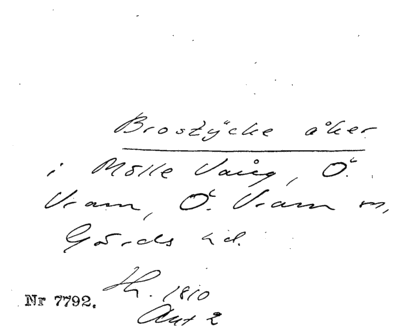 Brostycke åker
i Mölle Vång, Ö.
Vram, Ö. Vram sn,
Gärds hd.
Nr 7792. Hh. 1810
Akt 2